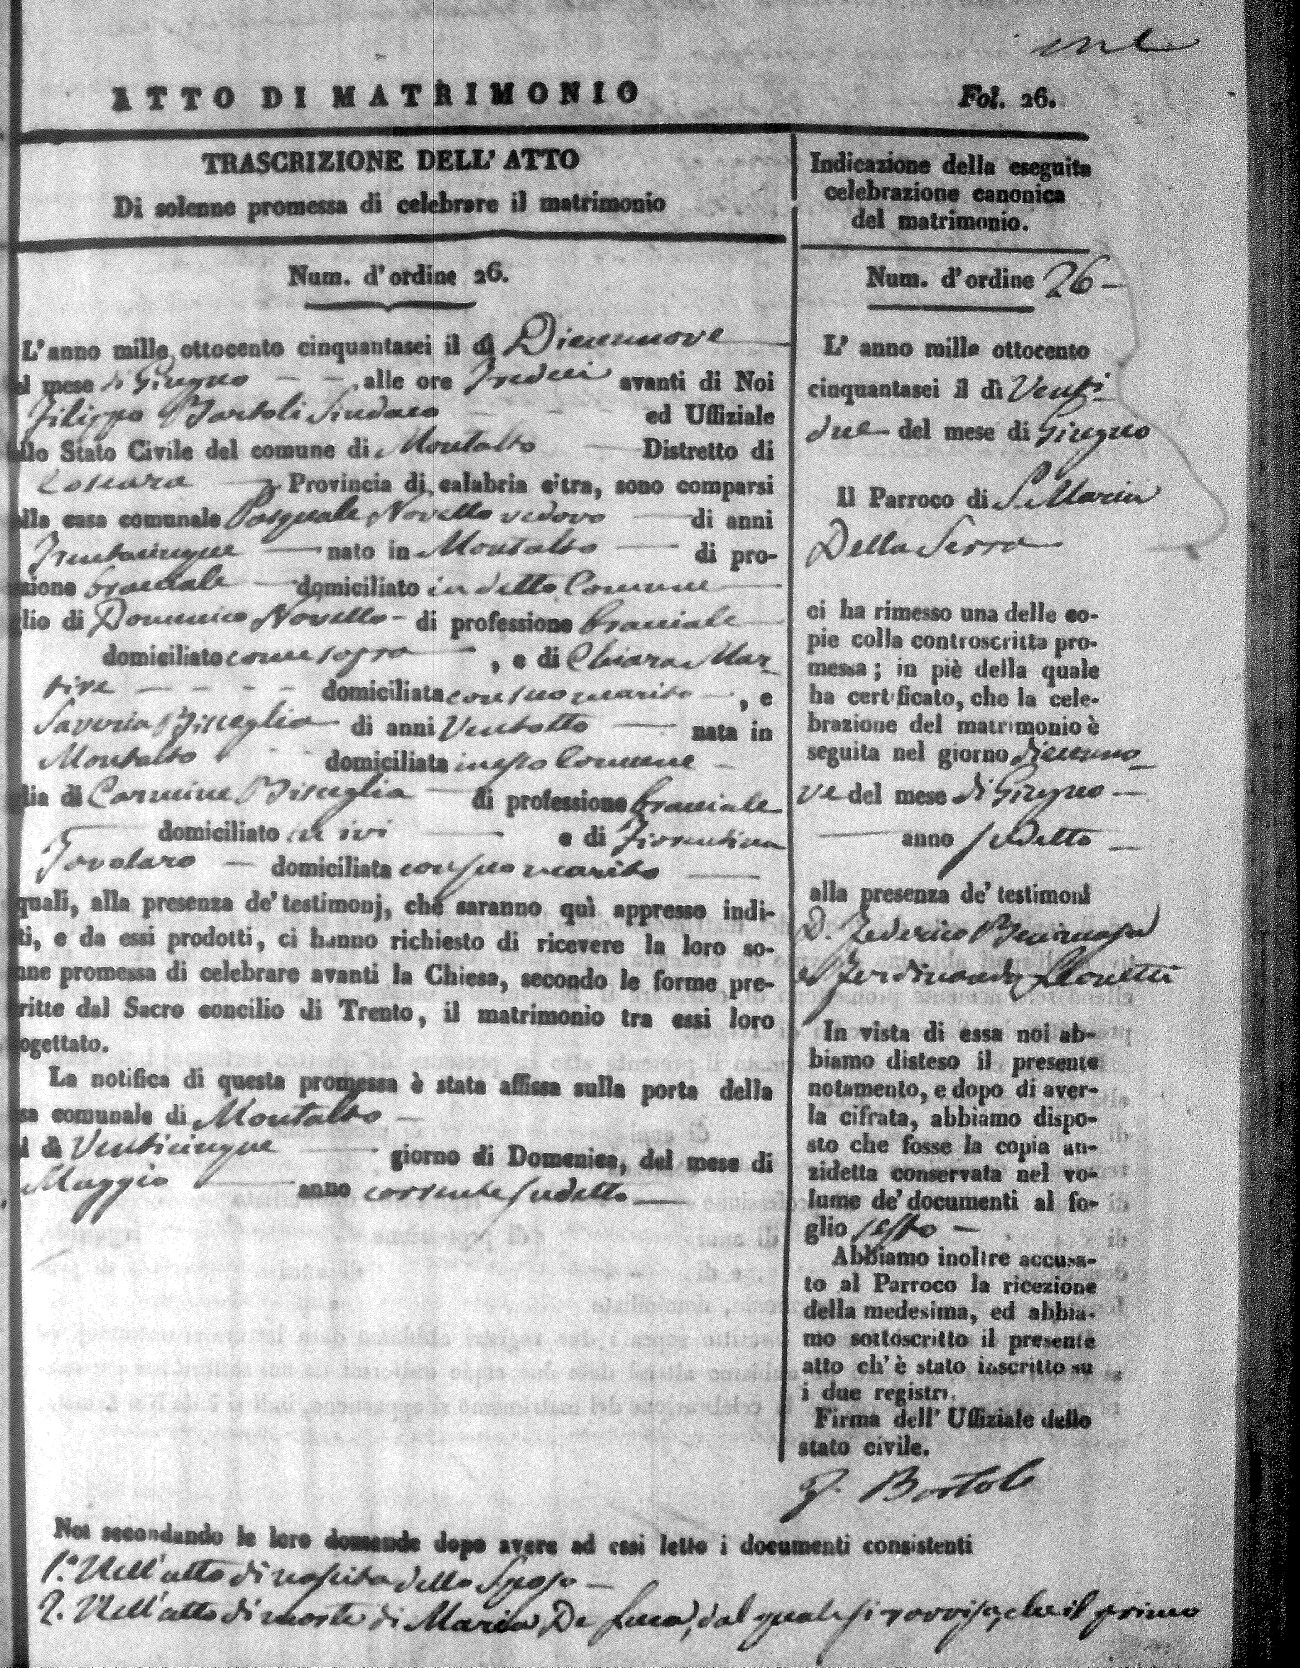 ATTO DI MATRIMONIO
Fol. 26.
TRASCRIZIONE DELL' ATTO
Di solenne promessa di celebrare il matrimonio
Num. d'ordine 26.
L'anno mille ottocento cinquantasei il dì Diecennove
l mese di Giugno alle ore Tredici avanti di Noi
Filippo Bartoli Sindaco ed Uffiziale
llo Stato Civile del comune di Montalto Distretto di
Cosenza Provincia di calabria citra, sono comparsi
lla casa comunale Pasquale Novello vedovo di anni
Trentacinque nato in Montalto di pro-
sione bracciale domiciliato in detto Comune
lio di Domenico Novello di professione bracciale
domiciliato come sopra , e di Chiara Mar
tire domiciliata con suo marito , e
Saveria Bisceglia di anni Ventotto nata in
Montalto domiciliata in esso Comune
lia di Carmine Bisceglia di professione bracciale
domiciliato in ivi e di Fiorentina
Tovolaro domiciliata con suo marito
quali, alla presenza de' testimonj, che saranno quì appresso indi-
ti, e da essi prodotti, ci hanno richiesto di ricevere la loro so-
nne promessa di celebrare avanti la Chiesa, secondo le forme pre-
ritte dal Sacro concilio di Trento, il matrimonio tra essi loro
ogettato.
La notifica di questa promessa è stata affissa sulla porta della
sa comunale di Montalto
l dì Venticinque giorno di Domenica, del mese di
Maggio anno corrente sudetto
Indicazione della eseguita
celebrazione canonica
del matrimonio.
Num. d'ordine 26
L' anno mille ottocento
cinquantasei il dì Venti
due del mese di Giugno
Il Parroco di S. Maria
Della Serra
ci ha rimesso una delle co-
pie colla controscritta pro-
messa; in piè della quale
ha certificato, che la cele-
brazione del matrimonio è
seguita nel giorno diecenno
ve del mese di Giugno
anno sudetto
alla presenza de' testimoni
D. Federico
e Ferdinando
In vista di essa noi ab-
biamo disteso il presente
notamento, e dopo di aver-
la cifrata, abbiamo dispo-
sto che fosse la copia an-
zidetta conservata nel vo-
lume de' documenti al fo-
glio sesto
Abbiamo inoltre accusa-
to al Parroco la ricezione
della medesima, ed abbia-
mo sottoscritto il presente
atto ch' è stato inscritto su
i due registri.
Firma dell' Uffiziale dello
stato civile.
F. Bartoli
Noi secondando le loro domande dopo avere ad essi letto i documenti consistenti
1.° Nell'atto di nascita dello Sposo
2. Nell'atto di morte di Maria De Luca, dal quale si rovvisa, che il primo